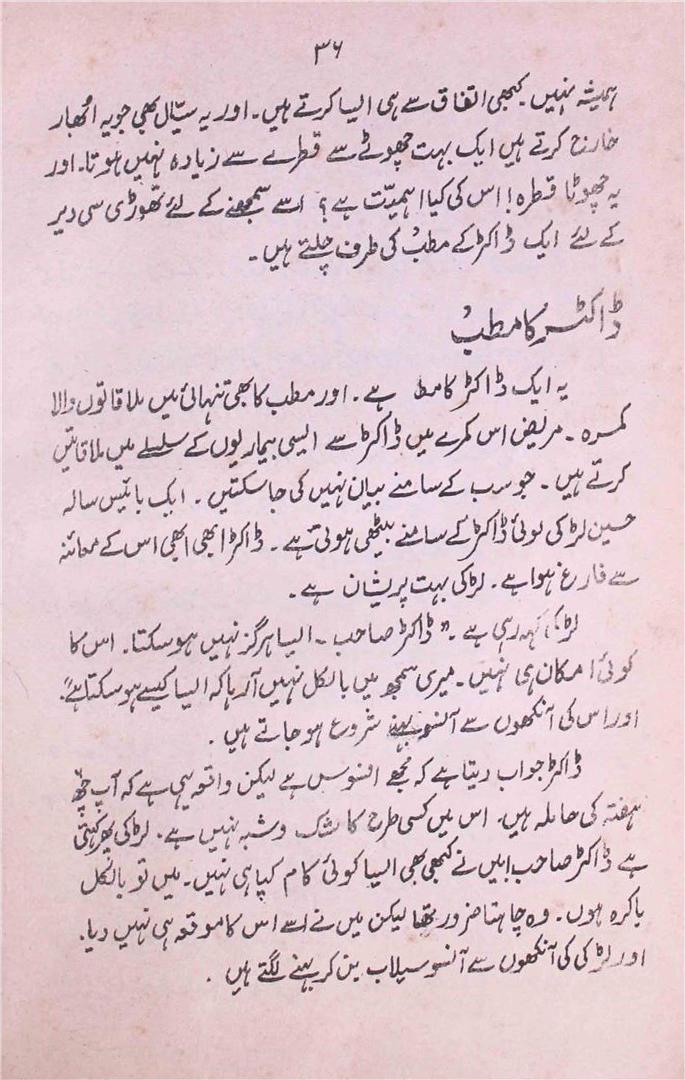 ۳۶
ہمیشہ نہیں کبھی اتفاق سے ہی ایسا کرتے ہیں۔ اور یہ سیّال بھی جو یہ اُبھار
خارج کرتے ہیں ایک بہت چھوٹے سے قطرے سے زیادہ نہیں ہوتا۔ اور
یہ چھوٹا قطرہ! اس کی کیا اہمیّت ہے؟ اسے سمجھنے کے لئے تھوڑی سی دیر
کے لئے ایک ڈاکٹر کے مطب کی طرف چلتے ہیں۔
ڈاکٹر کا مطب
یہ ایک ڈاکٹر کا مط ہے۔ اور مطب کا بھی تنہائی میں ملاقاتوں والا
کمرہ۔ مریض اس کمرے میں ڈاکٹر سے ایسی بیماریوں کے سلسلے میں ملاقاتیں
کرتے ہیں۔ جو سب کے سامنے بیان نہیں کی جا سکتیں۔ ایک بائیس سالہ
حسین لڑکی لوئی ڈاکٹر کے سامنے بیٹھی ہوئی ہے۔ ڈاکٹر ابھی ابھی اس کے معائنہ
سے فارغ ہوا ہے۔ لڑکی بہت پریشان ہے۔
لڑکی کہہ رہی ہے۔ "ڈاکٹر صاحب۔ ایسا ہرگز نہیں ہو سکتا۔ اس کا
کوئی امکان ہی نہیں۔ میری سمجھ میں بالکل نہیں آ رہا کہ ایسا کیسے ہو سکتا ہے"۔
اور اس کی آنکھوں سے آنسو بہنے شروع ہو جاتے ہیں۔
ڈاکٹر جواب دیتا ہے کہ مجھے افسوس ہے لیکن واقعہ یہی ہے کہ آپ چھ
ہفتہ کی حاملہ ہیں۔ اس میں کسی طرح کا شک و شبہ نہیں ہے۔ لڑکی پھر کہتی
ہے ڈاکٹر صاحب! میں نے کبھی بھی ایسا کوئی کام کیا ہی نہیں۔ میں تو بالکل
باکرہ ہوں۔ وہ چاہتا ضرور تھا لیکن میں نے اسے اس کا موقعہ ہی نہیں دیا۔
اور لڑکی کی آنکھوں سے آنسو سیلاب بن کر بہنے لگتے ہیں۔